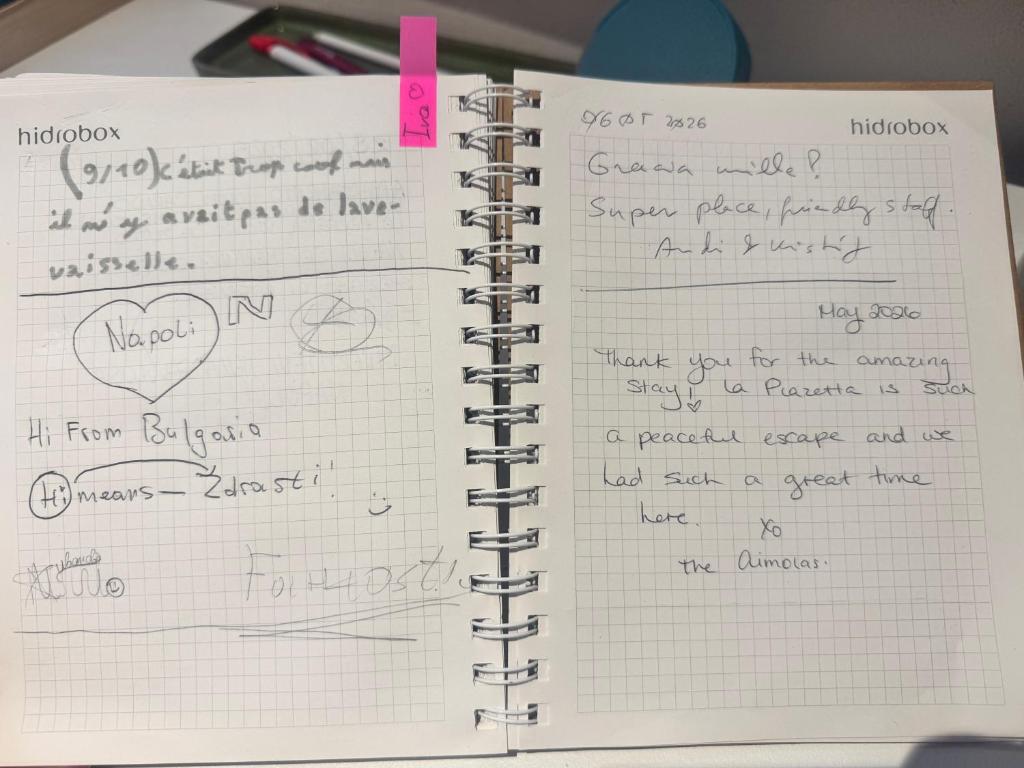 Ira
hidrobox
(9/10) c'était trop coof mais
il n'y avait pas de lave-
vaisselle.
Napoli
N
Hi From Bulgaria
Hi means — Zdrasti!
hidrobox
06 05 2026
Grazia mille!
Super place, friendly staff.
Andi &
May 2026
Thank you for the amazing
stay! La Piazetta is such
a peaceful escape and we
had such a great time
here.
Xo
the Aimolas.